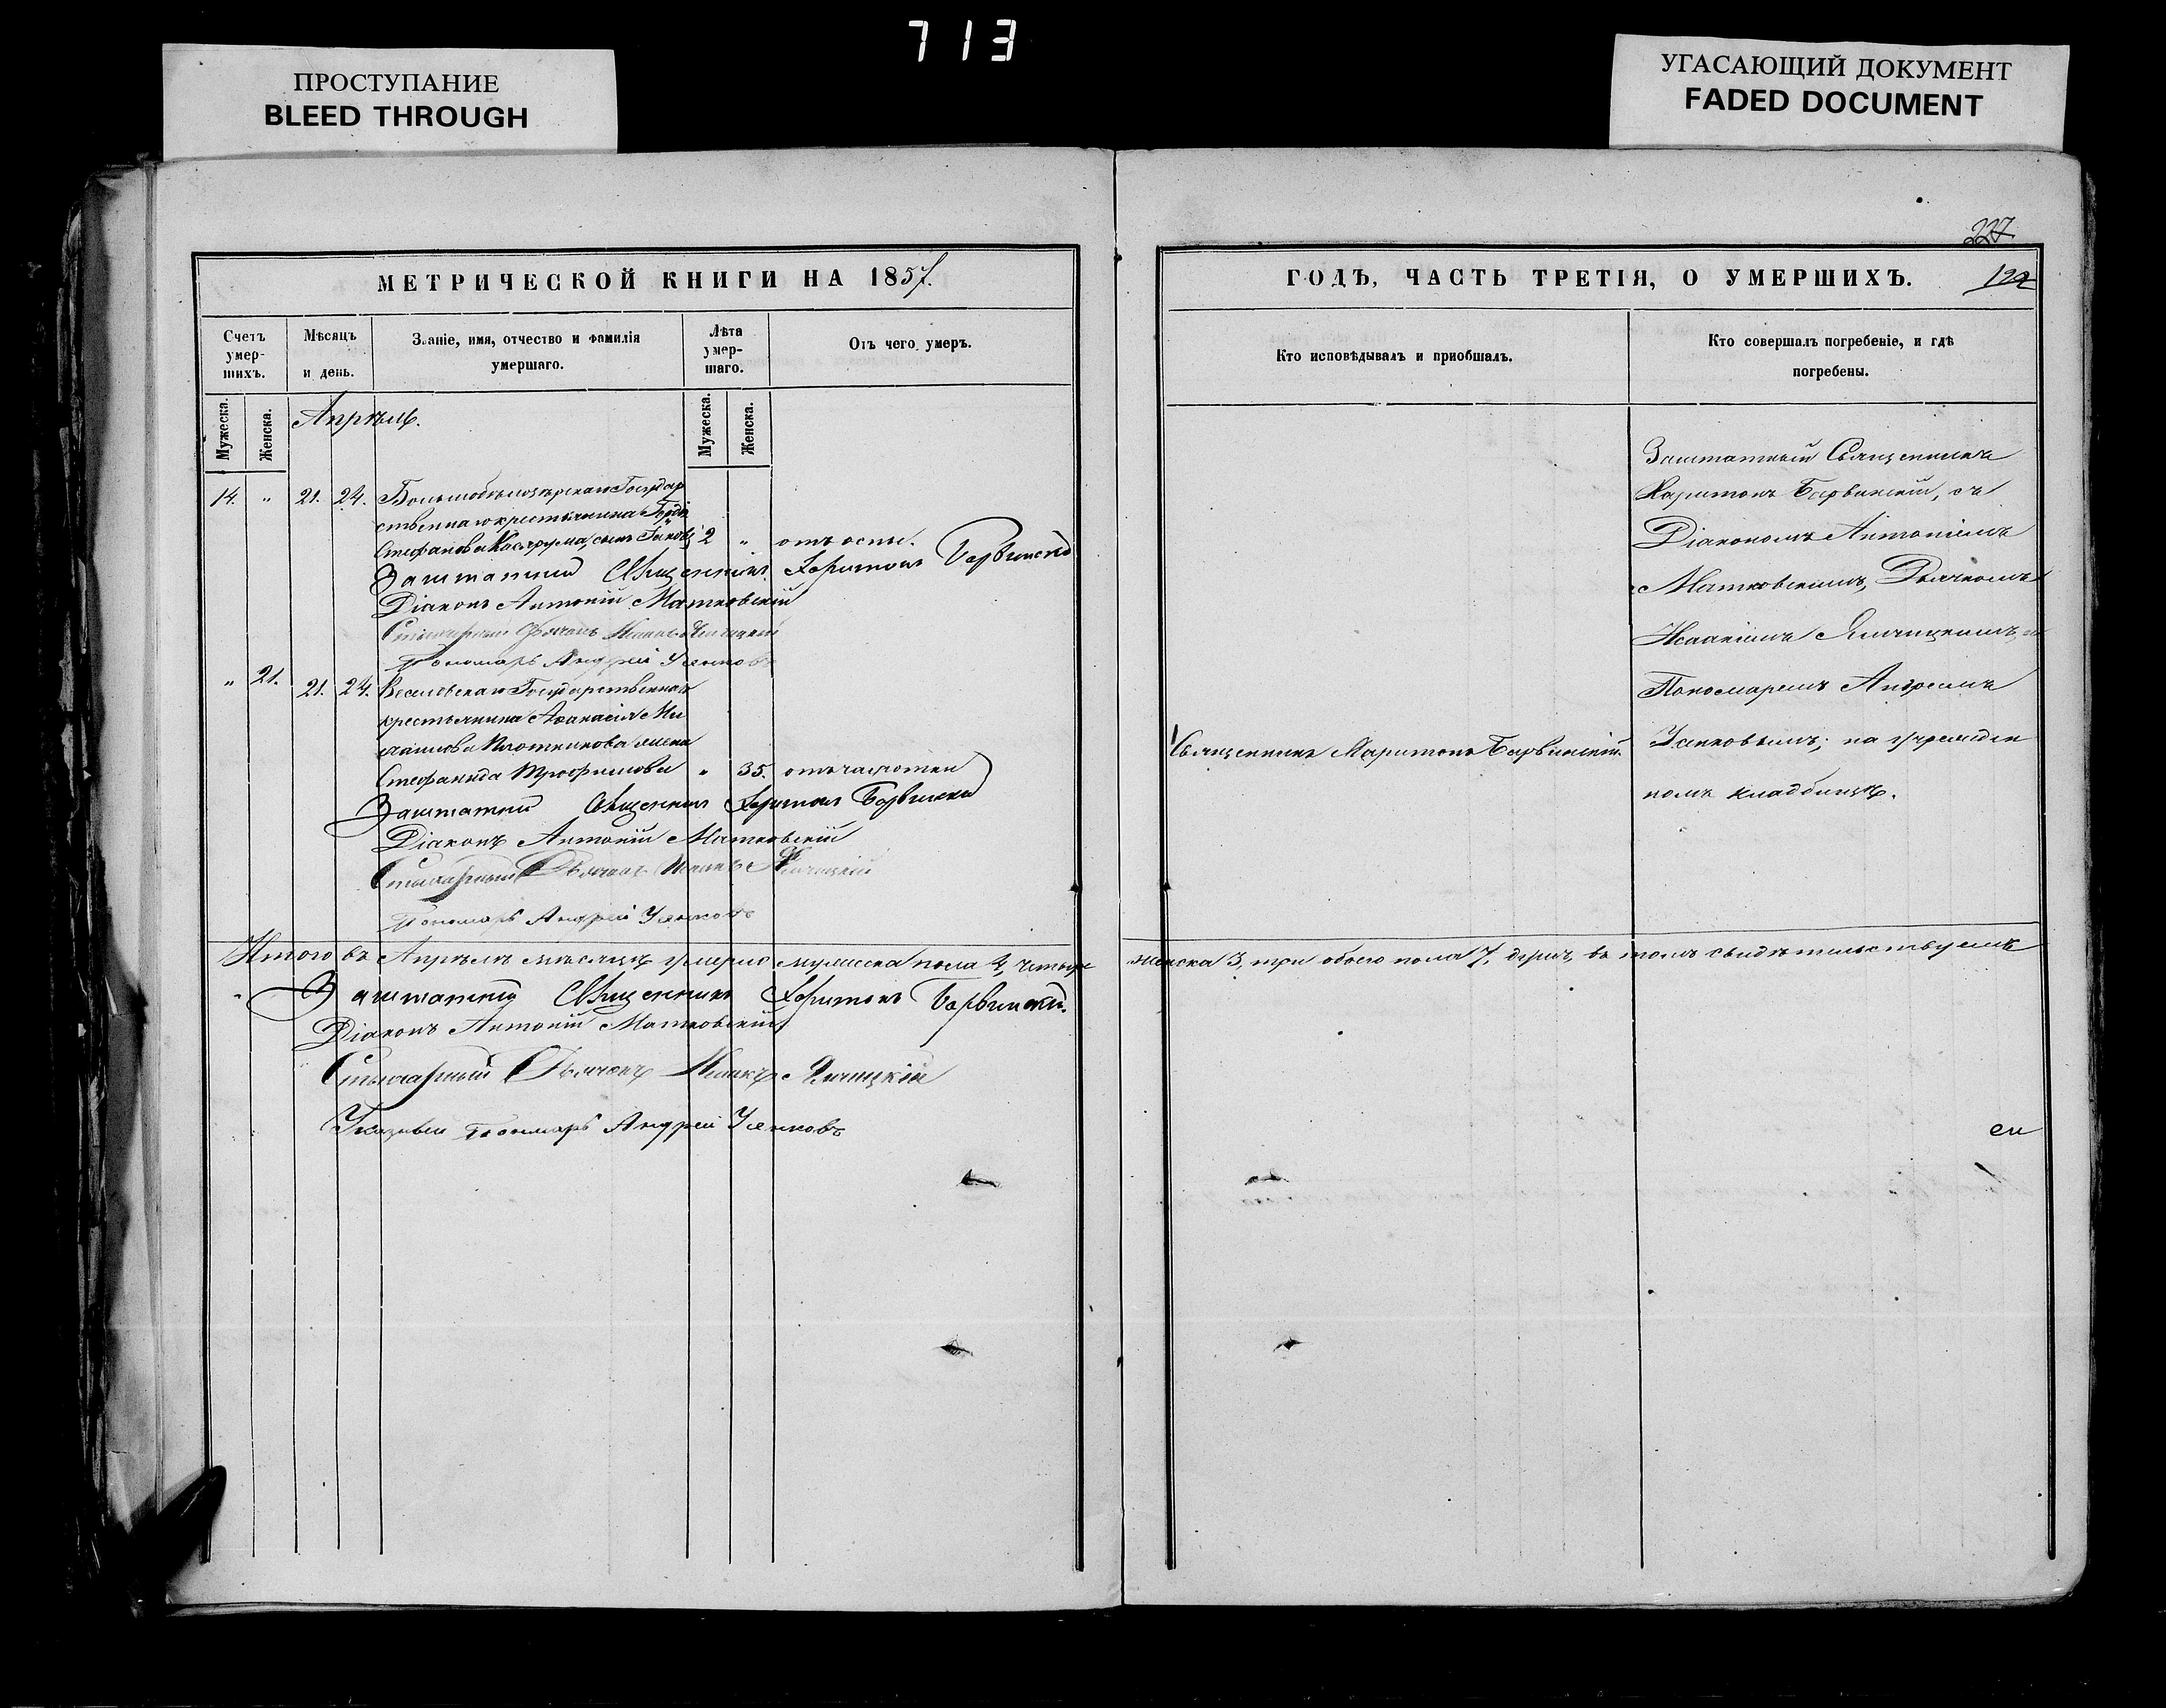 713
ПРОСТУПАНИЕ
BLEED THROUGH
УГАСАЮЩИЙ ДОКУМЕНТ
FADED DOCUMENT
МЕТРИЧЕСКОЙ КНИГИ НА 1857.
Счетъ умер-шихъ.
Мѣсяцъ и день.
Званіе, имя, отчество и фамилія умершаго.
Лѣта умер-шаго.
Отъ чего умеръ.
Мужеска.
Женска.
Апрѣль.
Мужеска.
Женска.
14. „ 21. 24. Большобѣлозѣрскаго Государ
ственнаго крестьянина
Стефанова сынъ 2 „ отъ оспы.
Заштатный Священникъ Харитонъ Барвинскій
Діаконъ Антоній Матковскій
Стихарный Дьячокъ Исаакъ Яличицкій
Пономарь Андрей Усенковъ
„ 21. 21. 24. Веселовскаго Государственнаго
крестьянина Афанасія Ми
хайлова Плотникова жена
Стефанида Трофимова „ 35. отъ чахотки
Заштатный Священникъ Харитонъ Барвинскій
Діаконъ Антоній Матковскій
Стихарный Дьячокъ Исаакъ
Пономарь Андрей Усенковъ
Итого въ Апрѣлѣ мѣсяцѣ умерло мужеска пола 4, четыре
Заштатный Священникъ Харитонъ Барвинскій.
Діаконъ Антоній Матковскій
Стихарный Дьячокъ Исаакъ
Указный Пономарь Андрей Усенковъ
227
122
ГОДЪ, ЧАСТЬ ТРЕТІЯ, О УМЕРШИХЪ.
Кто исповѣдывалъ и пріобщалъ.
Кто совершалъ погребеніе, и гдѣ погребены.
Заштатный Священникъ
Харитонъ Барвинскій, съ
Діакономъ Антоніемъ
Матковскимъ, Дьячкомъ
Исаакіемъ и
Пономаремъ Андреемъ
Священникъ Харитонъ Барвинскій.
Усенковымъ; на учрежден
номъ кладбищѣ.
женска 3, три обоего пола 7, душъ, въ томъ свидѣтельствуемъ